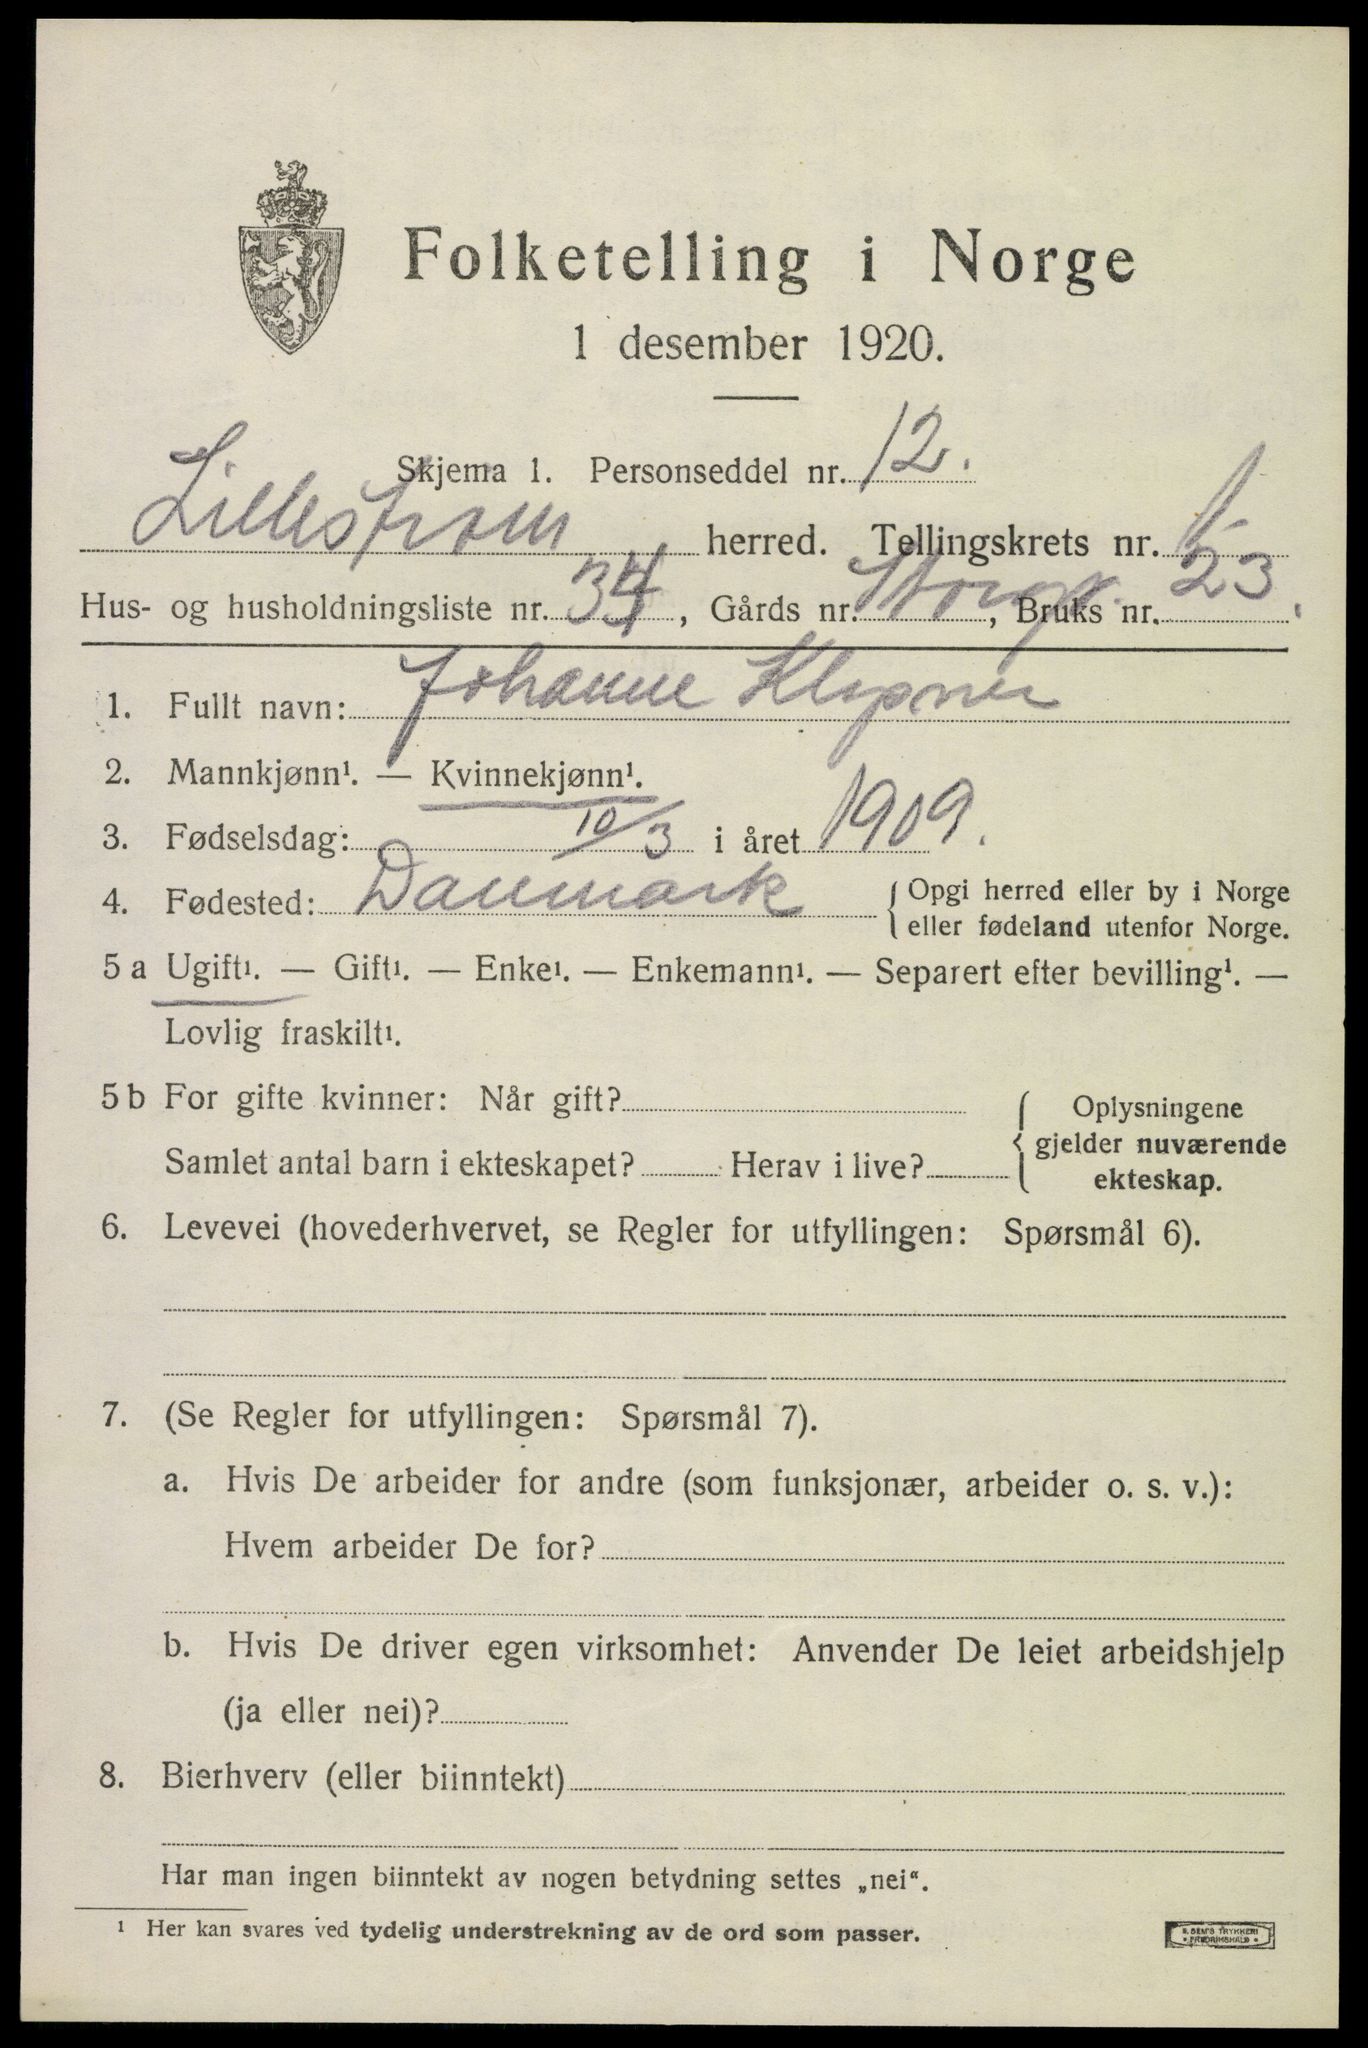 Folketelling i Norge
1 desember 1920.
Skjema 1. Personseddel nr. 12.
Lillestrøm herred. Tellingskrets nr. 1
Hus- og husholdningsliste nr. 34, Gårds nr. Storgt., Bruks nr. 23.
1. Fullt navn: Johanne
2. Mannkjønn¹. — Kvinnekjønn¹.
3. Fødselsdag: 10/3 i året 1909.
4. Fødested: Danmark { Opgi herred eller by i Norge
eller fødeland utenfor Norge.
5 a Ugift¹. — Gift¹. — Enke¹. — Enkemann¹. — Separert efter bevilling¹. —
Lovlig fraskilt¹.
5 b For gifte kvinner: Når gift?
Samlet antal barn i ekteskapet? Herav i live? { Oplysningene
gjelder nuværende
ekteskap.
6. Levevei (hovederhvervet, se Regler for utfyllingen: Spørsmål 6).
7. (Se Regler for utfyllingen: Spørsmål 7).
a. Hvis De arbeider for andre (som funksjonær, arbeider o. s. v.):
Hvem arbeider De for?
b. Hvis De driver egen virksomhet: Anvender De leiet arbeidshjelp
(ja eller nei)?
8. Bierhverv (eller biinntekt)
Har man ingen biinntekt av nogen betydning settes „nei“.
¹ Her kan svares ved tydelig understrekning av de ord som passer.
TRYKKERI
FREDRIKSHALD